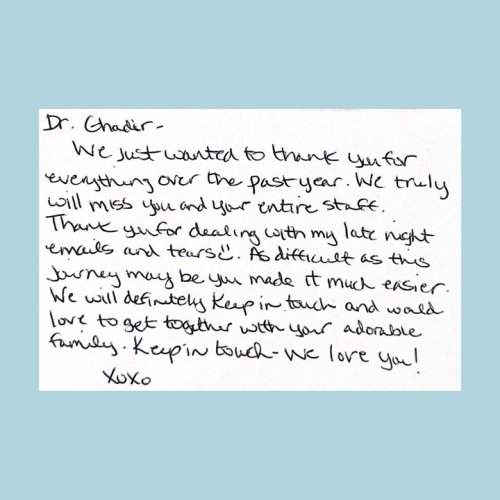 Dr. Ghadir-
We just wanted to thank you for
everything over the past year. We truly
will miss you and your entire staff.
Thank you for dealing with my late night
emails and tears☺. As difficult as this
journey may be you made it much easier.
We will definitely keep in touch and would
love to get together with your adorable
family. Keep in touch - We love you!
XOXO